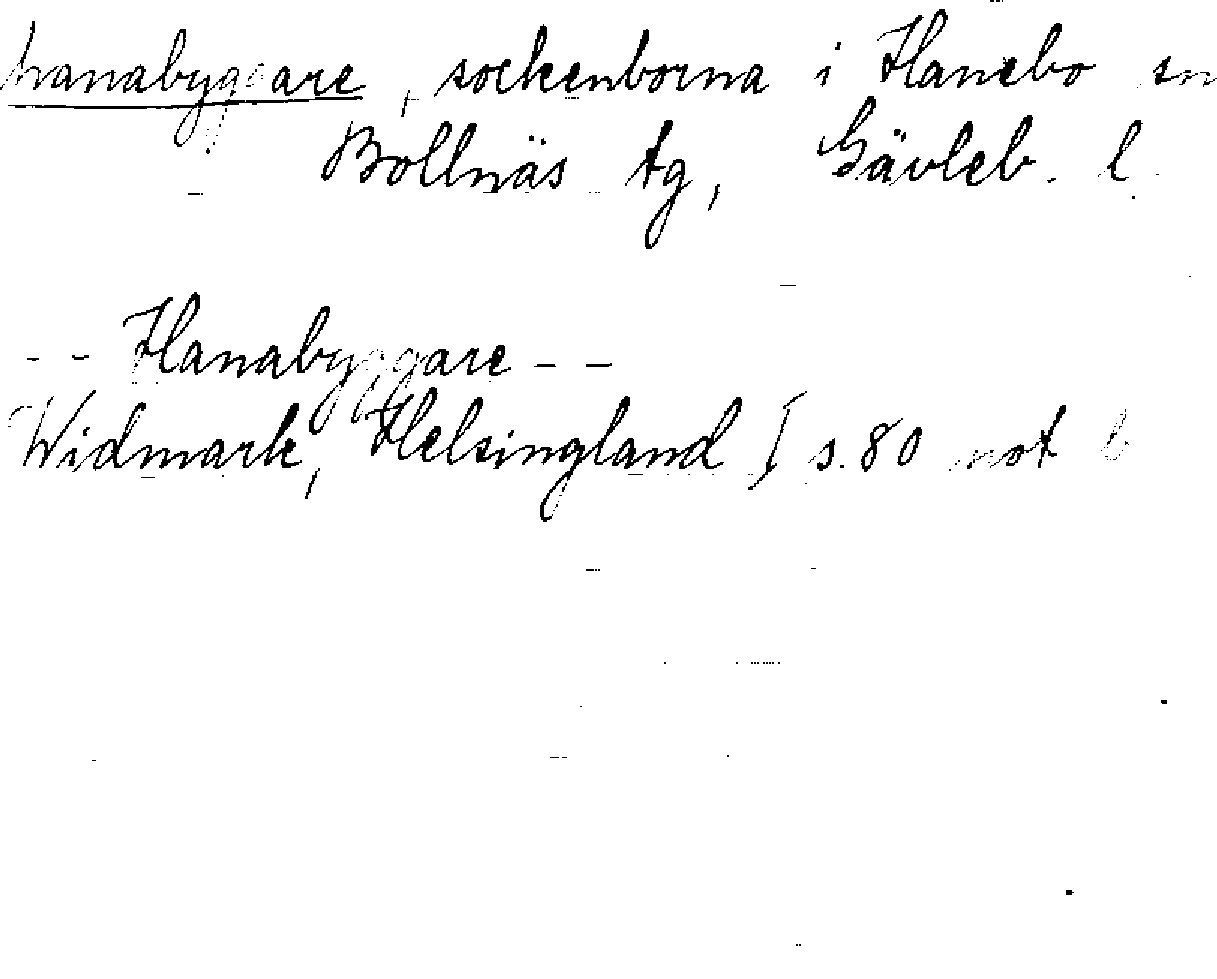 hanabyggare, sockenborna i Hanebo sn
Bollnäs tg, Gävleb. l.
-- Hanabyggare --
Widmark, Helsingland I s. 80 not b